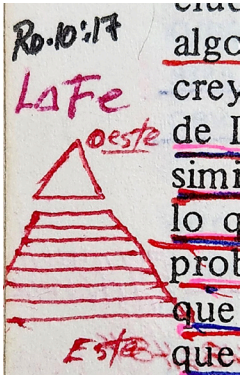 Ro. 10:17
La Fe
Oeste
Este
algo
crey
de
simi
lo q
prob
que
que